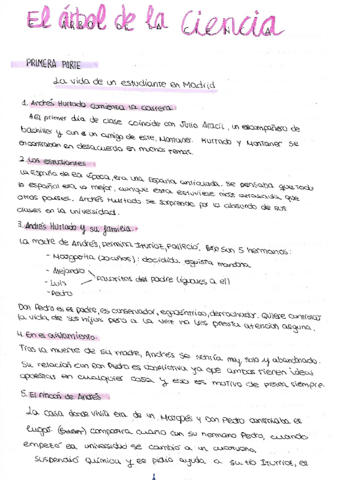 El árbol de la ciencia
PRIMERA PARTE
La vida de un estudiante en Madrid
1. Andrés Hurtado comienza la carrera
El primer día de clase coincide con Julio Aracil, un excompañero de
bachiller y con un amigo de este, Montaner. Hurtado y Montaner se
encontraban en desacuerdo en muchos temas.
2. Los estudiantes
La España de la época, era una España anticuada. Se pensaba que todo
lo español era lo mejor, aunque esta estuviese más atrasada que
otros países. Andrés Hurtado se sorprende por lo absurdo de sus
clases en la universidad.
3. Andrés Hurtado y su familia
La madre de Andrés, Fermina Iturrioz, falleció. Son 5 hermanos:
- Margarita (20 años): decidida, egoísta, mandona
- Alejandro
- Luis
favoritos del padre (iguales a él)
- Pedro
Don Pedro es el padre, es conservador, egocéntrico, derrochador. Quiere controlar
la vida de sus hijos pero a la vez no les presta atención alguna.
4. En el aislamiento
Tras la muerte de su madre, Andrés se sentía muy solo y abandonado.
Su relación con Don Pedro es conflictiva ya que ambos tienen ideas
opuestas en cualquier cosa y eso es motivo de pelea siempre.
5. El rincón de Andrés
La casa donde vivía era de un Marqués y Don Pedro controlaba el
lugar. compartía cuarto con su hermano Pedro, cuando
empezó la universidad se cambió a un
suspendió química y le pidió ayuda a su tío Iturrioz, el
1